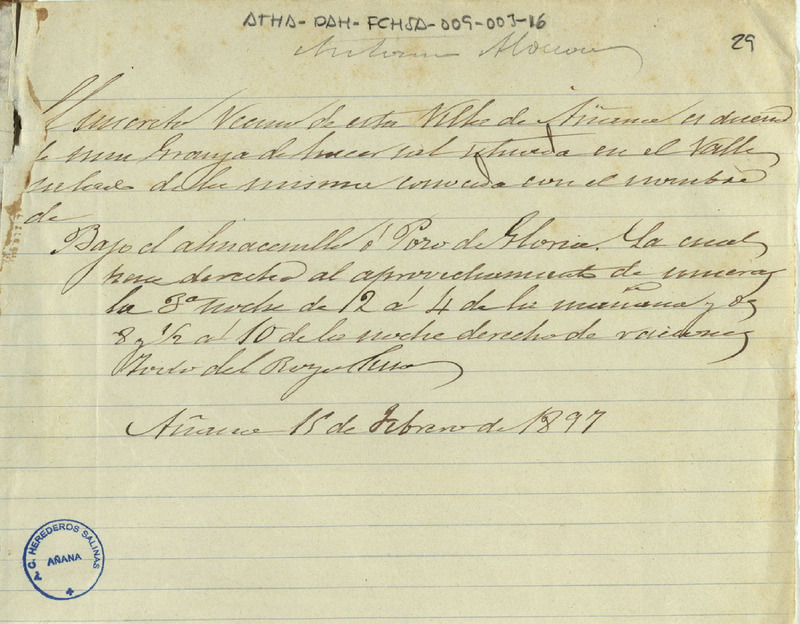 ATHA-DAH-FCHSA-009-003-16
29
Antonio
El suscrito Vecino de esta Villa de Añana es dueño
de una Granja de hacer sal situada en el Valle
salado de la misma conocida con el nombre
de
Bajo el almacenillo ó Pozo de Gloria. La cual
tiene derecho al aprovechamiento de muera
la 3ª noche de 12 á 4 de la mañana y de
8 y ½ á 10 de la noche derecho de raciones
del Royo Suso
Añana 15 de Febrero de 1897
C. HEREDEROS SALINAS
AÑANA